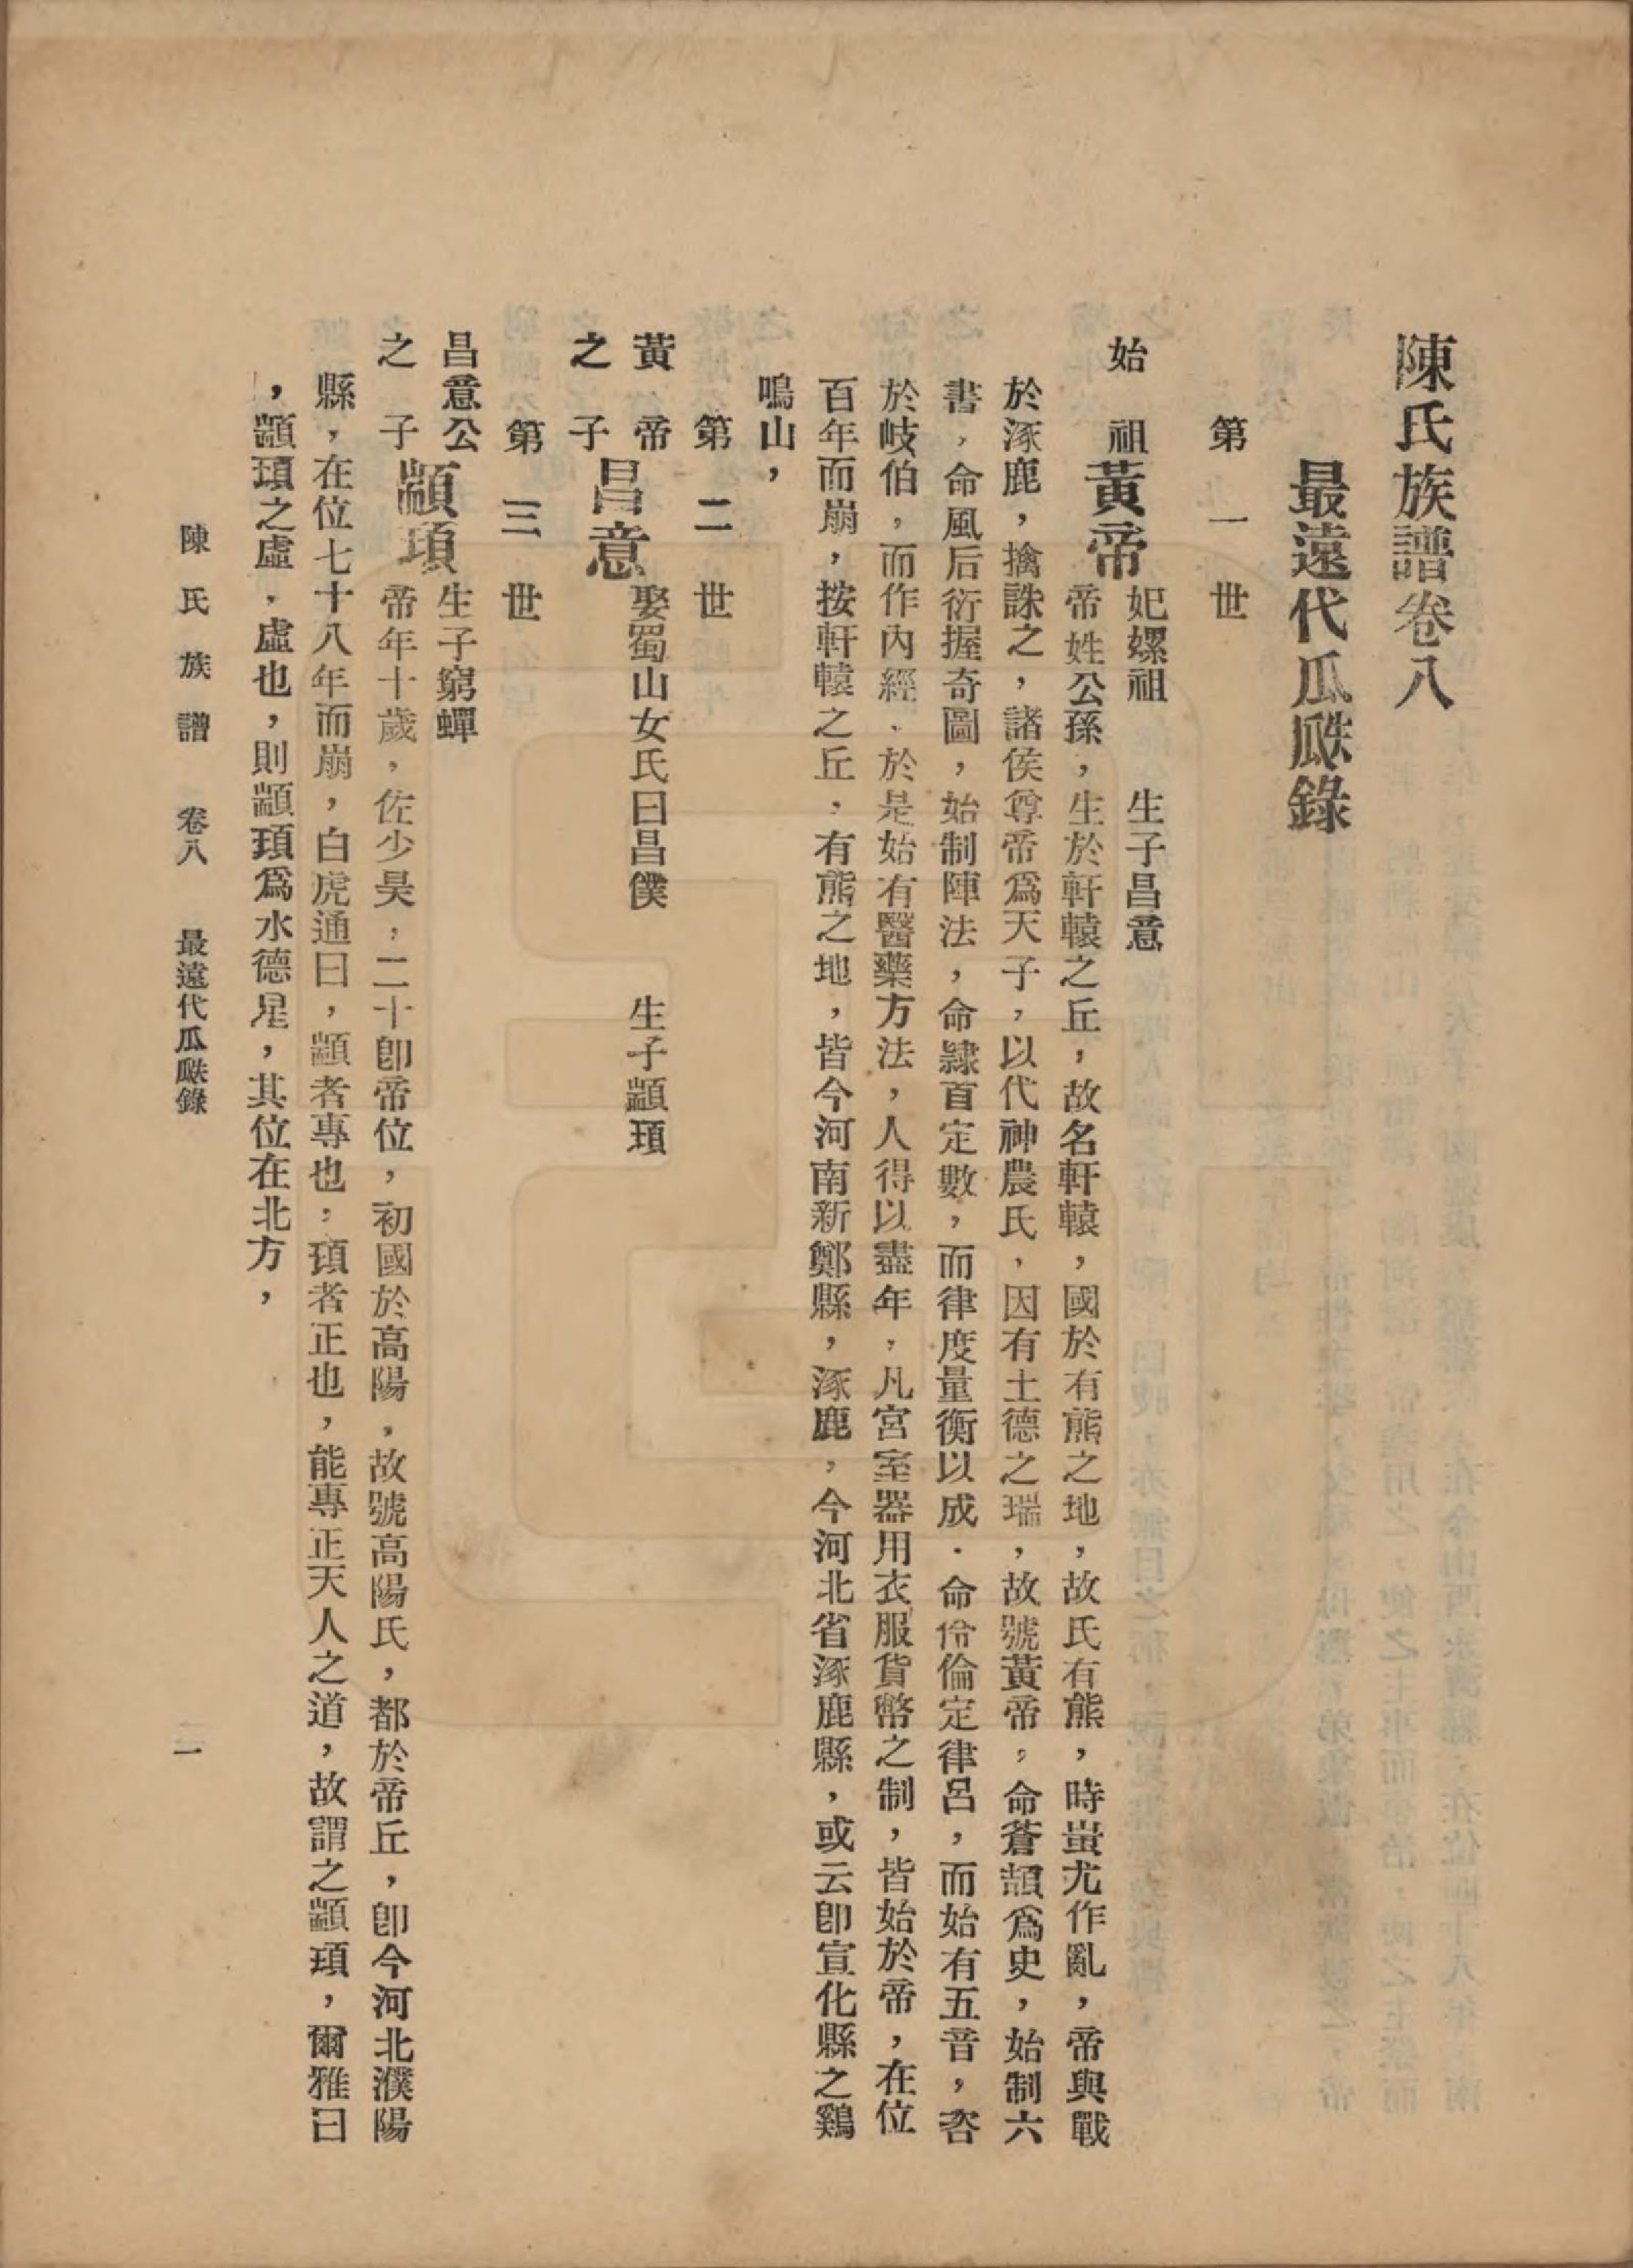 陳氏族譜卷八
最遠代瓜瓞錄
第一世
始祖黃帝
妃嫘祖　生子昌意
帝姓公孫，生於軒轅之丘，故名軒轅，國於有熊之地，故氏有熊，時蚩尤作亂，帝與戰
於涿鹿，擒誅之，諸侯尊帝爲天子，以代神農氏，因有土德之瑞，故號黃帝，命蒼頡爲史，始制六
書，命風后衍握奇圖，始制陣法，命隸首定數，而律度量衡以成．命伶倫定律呂，而始有五音，咨
於岐伯，而作內經．於是始有醫藥方法，人得以盡年，凡宮室器用衣服貨幣之制，皆始於帝，在位
百年而崩，按軒轅之丘，有熊之地，皆今河南新鄭縣，涿鹿，今河北省涿鹿縣，或云卽宣化縣之鷄
鳴山，
第二世
黃帝之子昌意
娶蜀山女氏曰昌僕　生子顓頊
第三世
昌意公之子顓頊
生子窮蟬
帝年十歲，佐少昊，二十卽帝位，初國於高陽，故號高陽氏，都於帝丘，卽今河北濮陽
縣，在位七十八年而崩，白虎通曰，顓者專也，頊者正也，能專正天人之道，故謂之顓頊，爾雅曰
，顓頊之虛，虛也，則顓頊爲水德是，其位在北方，
陳氏族譜　卷八　最遠代瓜瓞錄　一